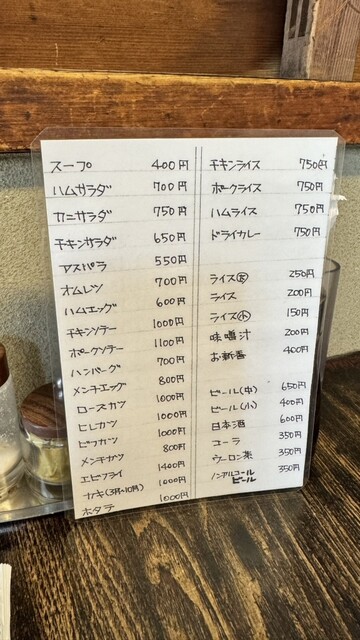 スープ 400円
ハムサラダ 700円
カニサラダ 750円
チキンサラダ 650円
アスパラ 550円
オムレツ 700円
ハムエッグ 600円
チキンソテー 1000円
ポークソテー 1100円
ハンバーグ 700円
メンチエッグ 800円
ロースカツ 1000円
ヒレカツ 1000円
ビフカツ 1000円
メンチカツ 800円
エビフライ 1400円
カキ(3月〜10月) 1000円
ホタテ 1000円
チキンライス 750円
ポークライス 750円
ハムライス 750円
ドライカレー 750円
ライス大 250円
ライス 200円
ライス小 150円
味噌汁 200円
お新香 400円
ビール(中) 650円
ビール(小) 400円
日本酒 600円
コーラ 350円
ウーロン茶 350円
ノンアルコールビール 350円